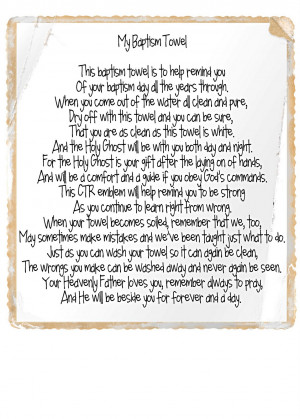 My Baptism Towel
This baptism towel is to help remind you
Of your baptism day all the years through.
When you come out of the water all clean and pure,
Dry off with this towel and you can be sure,
That you are as clean as this towel is white.
And the Holy Ghost will be with you both day and night.
For the Holy Ghost is your gift after the laying on of hands,
And will be a comfort and a guide if you obey God's commands.
This CTR emblem will help remind you to be strong
As you continue to learn right from wrong.
When your towel becomes soiled, remember that we, too,
May sometimes make mistakes and we've been taught just what to do.
Just as you can wash your towel so it can again be clean,
The wrongs you make can be washed away and never again be seen.
Your Heavenly Father loves you, remember always to pray,
And He will be beside you for forever and a day.